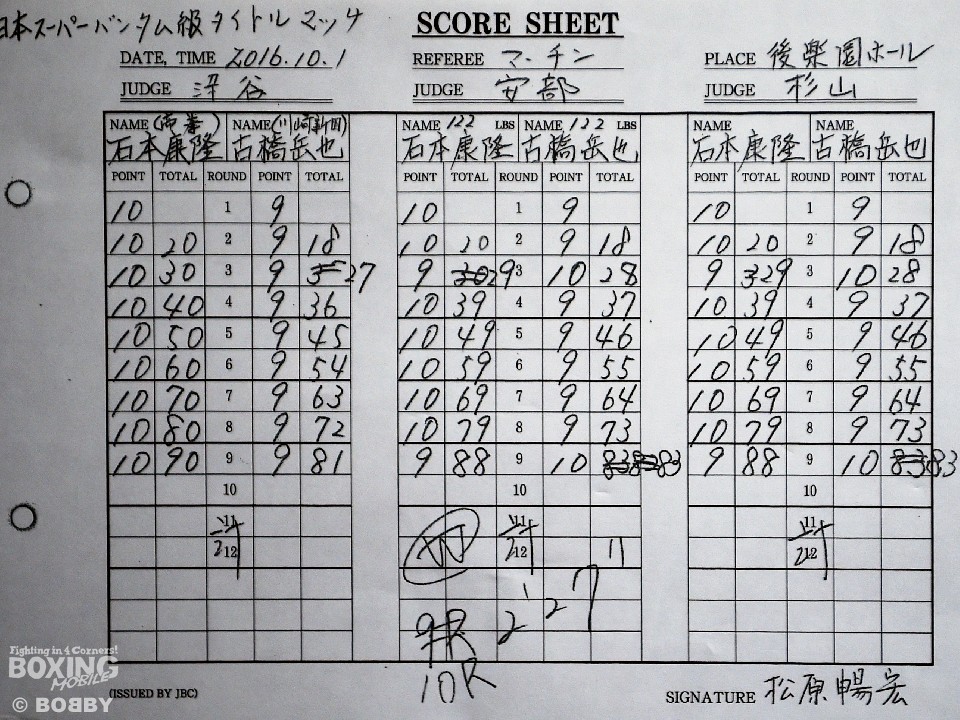 日本スーパーバンタム級タイトルマッチ SCORE SHEET
DATE, TIME 2016.10.1 REFEREE マーチン PLACE 後楽園ホール
JUDGE 深谷 JUDGE 安部 JUDGE 杉山
NAME (帝拳) NAME (川崎新田) NAME 122 LBS NAME 122 LBS NAME NAME
石本康隆 古橋岳也 石本康隆 古橋岳也 石本康隆 古橋岳也
POINT TOTAL ROUND POINT TOTAL POINT TOTAL ROUND POINT TOTAL POINT TOTAL ROUND POINT TOTAL
10 1 9 10 1 9 10 1 9
10 20 2 9 18 10 20 2 9 18 10 20 2 9 18
10 30 3 9 27 9 29 3 10 28 9 29 3 10 28
10 40 4 9 36 10 39 4 9 37 10 39 4 9 37
10 50 5 9 45 10 49 5 9 46 10 49 5 9 46
10 60 6 9 54 10 59 6 9 55 10 59 6 9 55
10 70 7 9 63 10 69 7 9 64 10 69 7 9 64
10 80 8 9 72 10 79 8 9 73 10 79 8 9 73
10 90 9 9 81 9 88 9 10 83 9 88 9 10 83
10 10 10
11 11 11
12 12 12
2'27"
R
10R
Fighting in 4 Corners!
BOXING
MOBILE
© BOBBY
(ISSUED BY JBC) SIGNATURE 松原暢宏